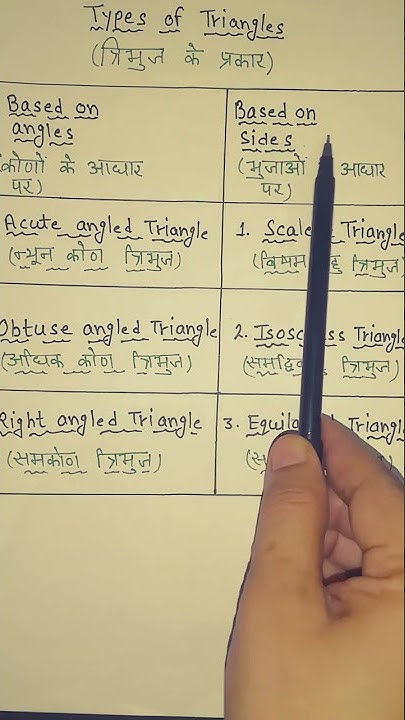 Types of Triangles
(त्रिभुज के प्रकार)
Based on
angles
(कोणों के आधार
पर)
Based on
Sides
(भुजाओं आधार
पर)
Acute angled Triangle
(न्यून कोण त्रिभुज)
1. Triangle
(विषम त्रिभुज)
Obtuse angled Triangle
(अधिक कोण त्रिभुज)
2. Triangle
त्रिभुज)
Right angled Triangle
(समकोण त्रिभुज)
3. Triangle